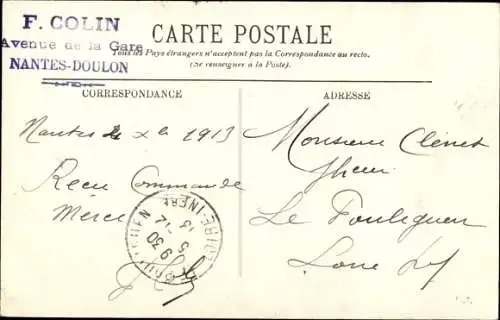 F. COLIN
Avenue de la Gare
NANTES-DOULON
CARTE POSTALE
Tous les Pays étrangers n'acceptent pas la Correspondance au recto.
(Se renseigner à la Poste).
CORRESPONDANCE
ADRESSE
Nantes 1913
Recu Commande
Merci
Monsieur
Le Pouliguen
Loire
9 30
5 -12
13